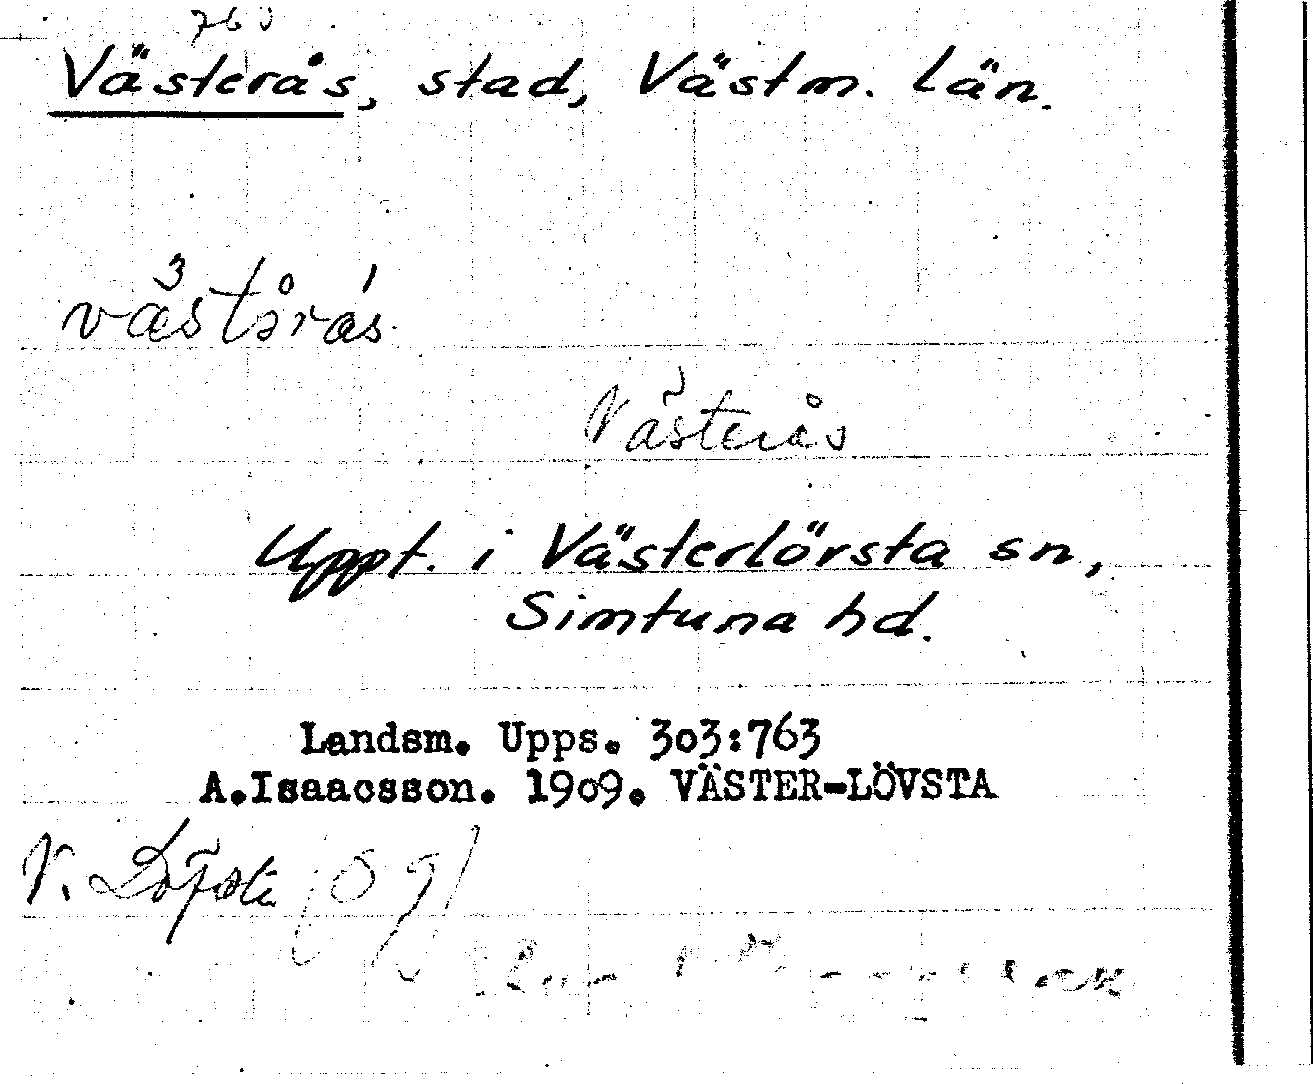 763
Västerås, stad, Västm. län.
Västerås
Uppt. i Västerlörsta sn,
Simtuna hd.
Landsm. Upps. 303:763
A.Isaacsson. 1909. VÄSTER-LÖVSTA
V. Löfsta (09)